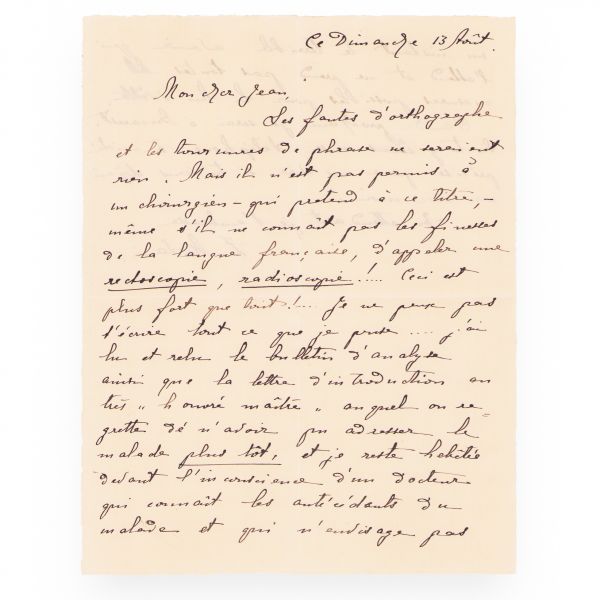 Ce Dimanche 13 Août.
Mon cher Jean,
Les fautes d'orthographe
et les tournures de phrase ne seraient
rien. Mais il n'est pas permis à
un chirurgien – qui prétend à ce titre, –
même s'il ne connaît pas les finesses
de la langue française, d'appeler une
rectoscopie, radioscopie !.... Ceci est
plus fort que tout !.... Je ne peux pas
t'écrire tout ce que je pense .... j'ai
lu et relu le bulletin d'analyse
ainsi que la lettre d'introduction au
très "honoré maître" auquel on re-
grette de n'avoir pu adresser le
malade plus tôt, et je reste hébétée
devant l'inconscience d'un docteur
qui connaît les antécédants du
malade et qui n'envisage pas